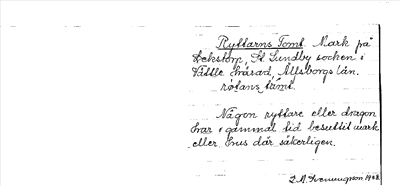 Ryttarns Tomt. Mark på
Ekstorp, St. Lundby socken i
Vättle härad, Älfsborgs län.
Någon ryttare eller dragon
har i gammal tid besuttit mark
eller hus där säkerligen.
1928